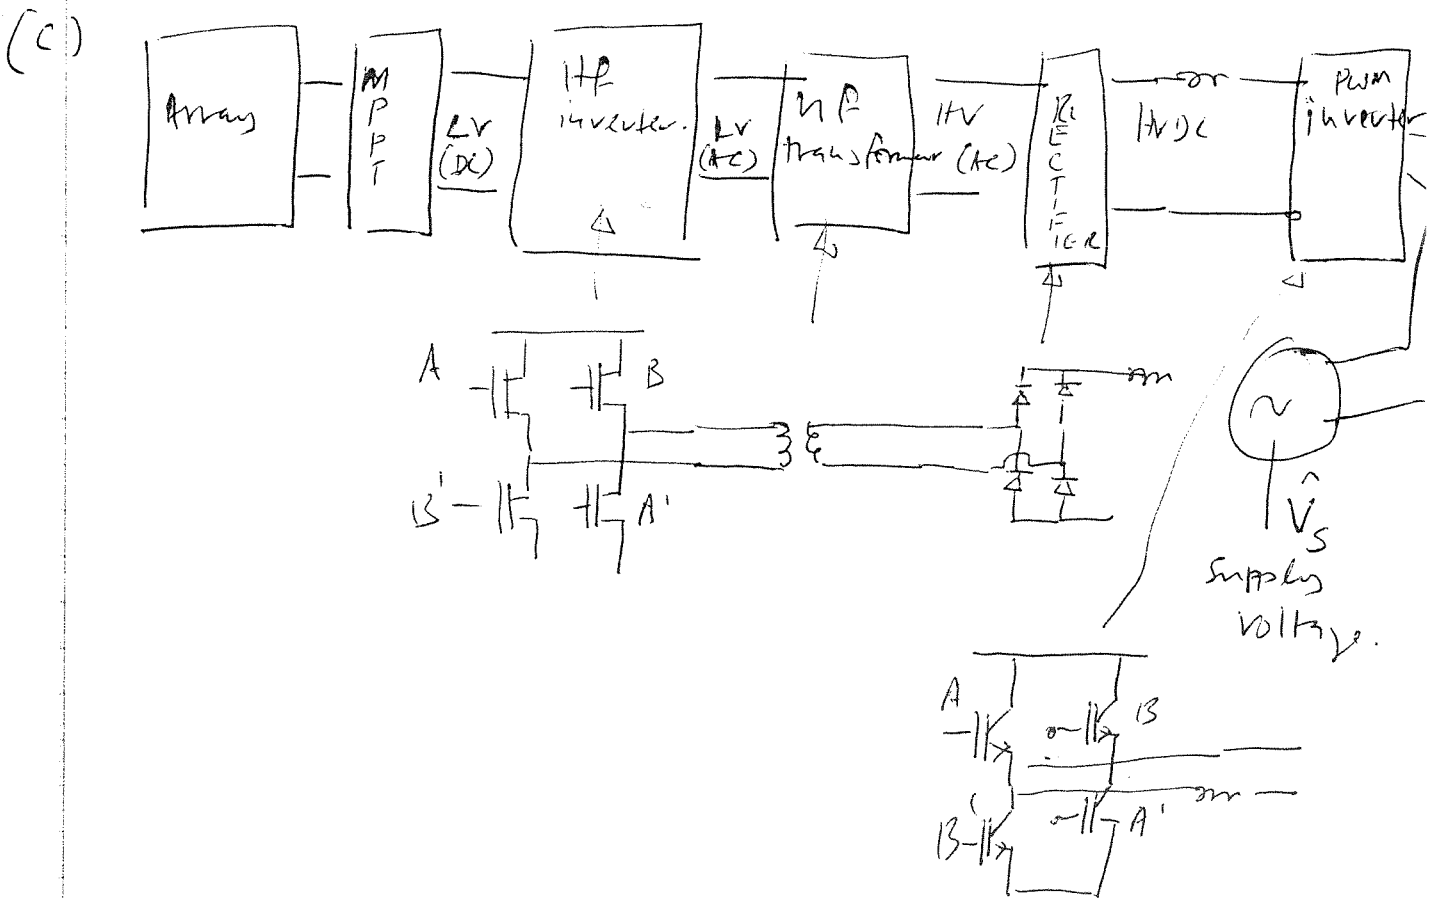 (C)
Array
MPPT
LV
(DC)
HF
inverter.
LV
(AC)
HF
transformer
HV
(AC)
RECTIFIER
HVDC
PWM
inverter
A
B
B'
A'
~
V̂s
Supply
voltage.
A
B
B'
A'